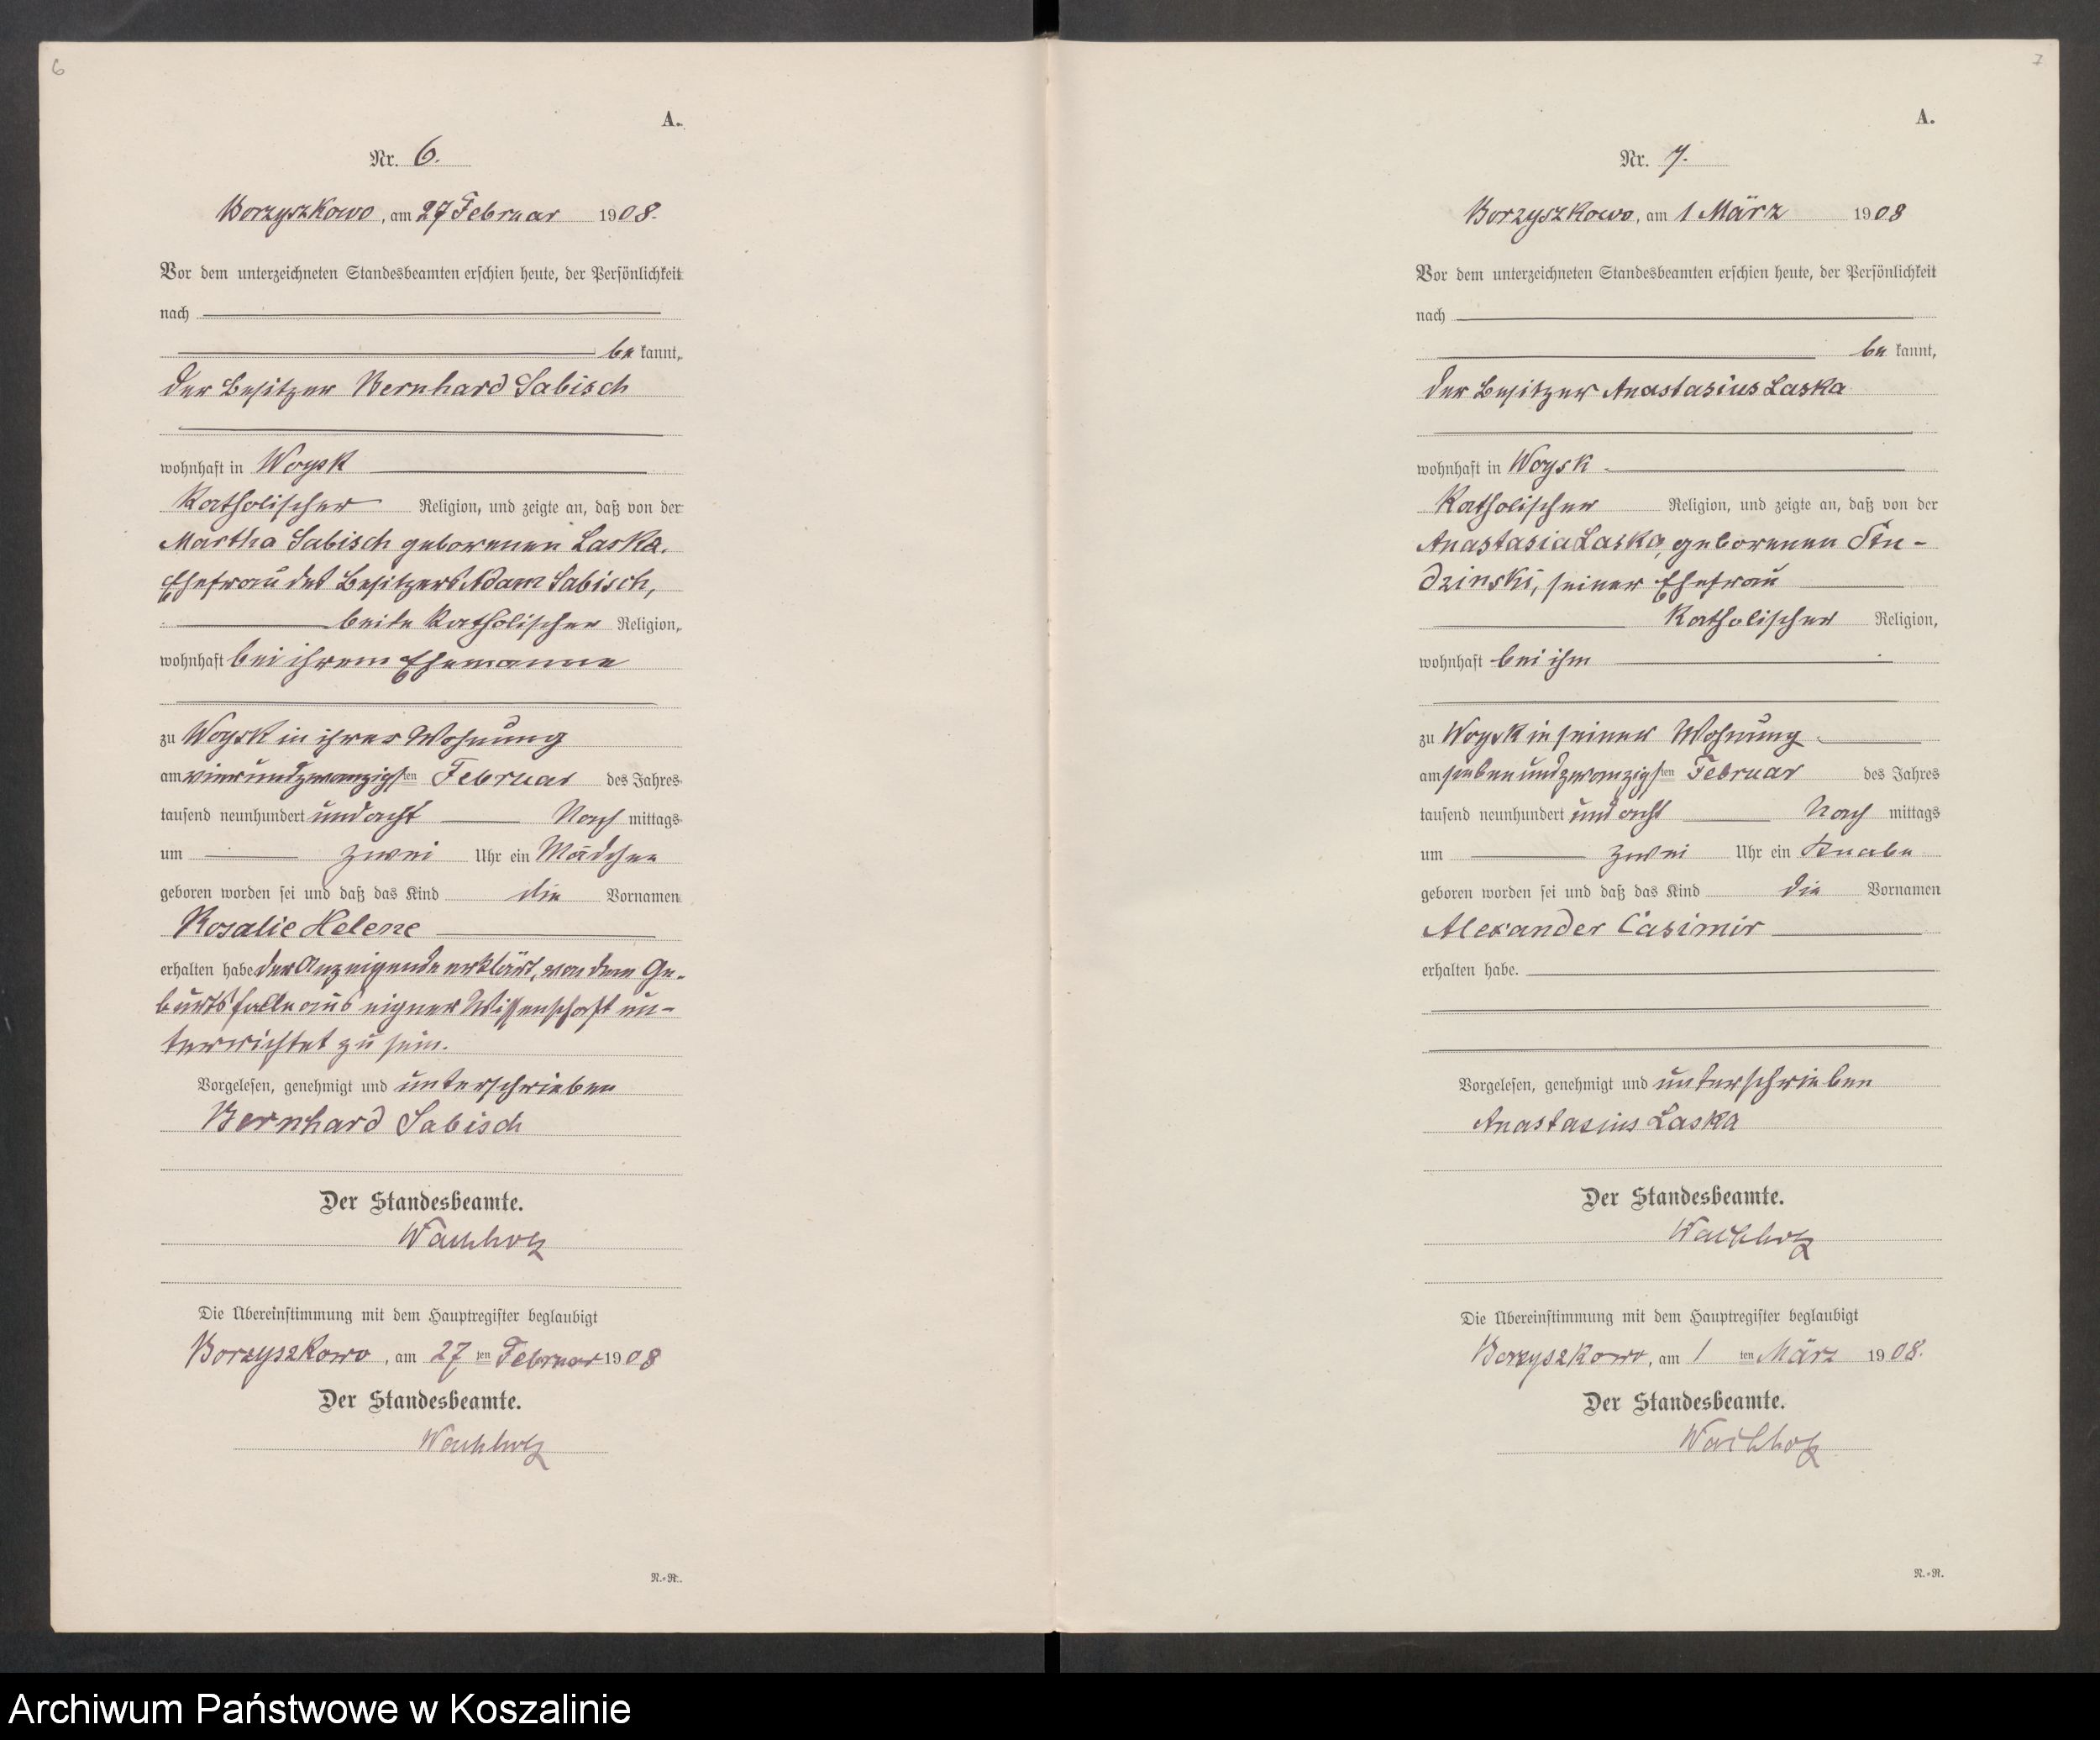 6
A.
Nr. 6.
Borzyszkowo, am 27 Februar 1908.
Vor dem unterzeichneten Standesbeamten erschien heute, der Persönlichkeit
nach
be kannt,
der Besitzer Bernhard Sabisch
wohnhaft in Woysk
katholischer Religion, und zeigte an, daß von der
Martha Sabisch geborenen Laska.
Ehefrau des Besitzers Adam Sabisch,
beide katholischer Religion,
wohnhaft bei ihrem Ehemanne
zu Woysk in ihrer Wohnung
am vierundzwanzigsten Februar des Jahres
tausend neunhundert und acht Nach mittags
um zwei Uhr ein Mädchen
geboren worden sei und daß das Kind die Vornamen
Rosalie Helene
erhalten habe der Anzeigende erklärt, von dem Ge-
burtsfalle aus eigner Wissenschaft un-
terrichtet zu sein.
Vorgelesen, genehmigt und unterschrieben
Bernhard Sabisch
Der Standesbeamte.
Wachholz
Die Übereinstimmung mit dem Hauptregister beglaubigt
Borzyszkowo, am 27 ten Februar 1908
Der Standesbeamte.
Wachholz
N.=R.
7
A.
Nr. 7.
Borzyszkowo, am 1 März 1908
Vor dem unterzeichneten Standesbeamten erschien heute, der Persönlichkeit
nach
be kannt,
der Besitzer Anastasius Laska
wohnhaft in Woysk
katholischer Religion, und zeigte an, daß von der
Anastasia Laska, geborenen
seiner Ehefrau
katholischer Religion,
wohnhaft bei ihm
zu Woysk in seiner Wohnung
am siebenundzwanzigsten Februar des Jahres
tausend neunhundert und acht Nach mittags
um zwei Uhr ein Knabe
geboren worden sei und daß das Kind die Vornamen
Alexander Casimir
erhalten habe.
Vorgelesen, genehmigt und unterschrieben
Anastasius Laska
Der Standesbeamte.
Wachholz
Die Übereinstimmung mit dem Hauptregister beglaubigt
Borzyszkowo, am 1 ten März 1908.
Der Standesbeamte.
Wachholz
N.=R.
Archiwum Państwowe w Koszalinie